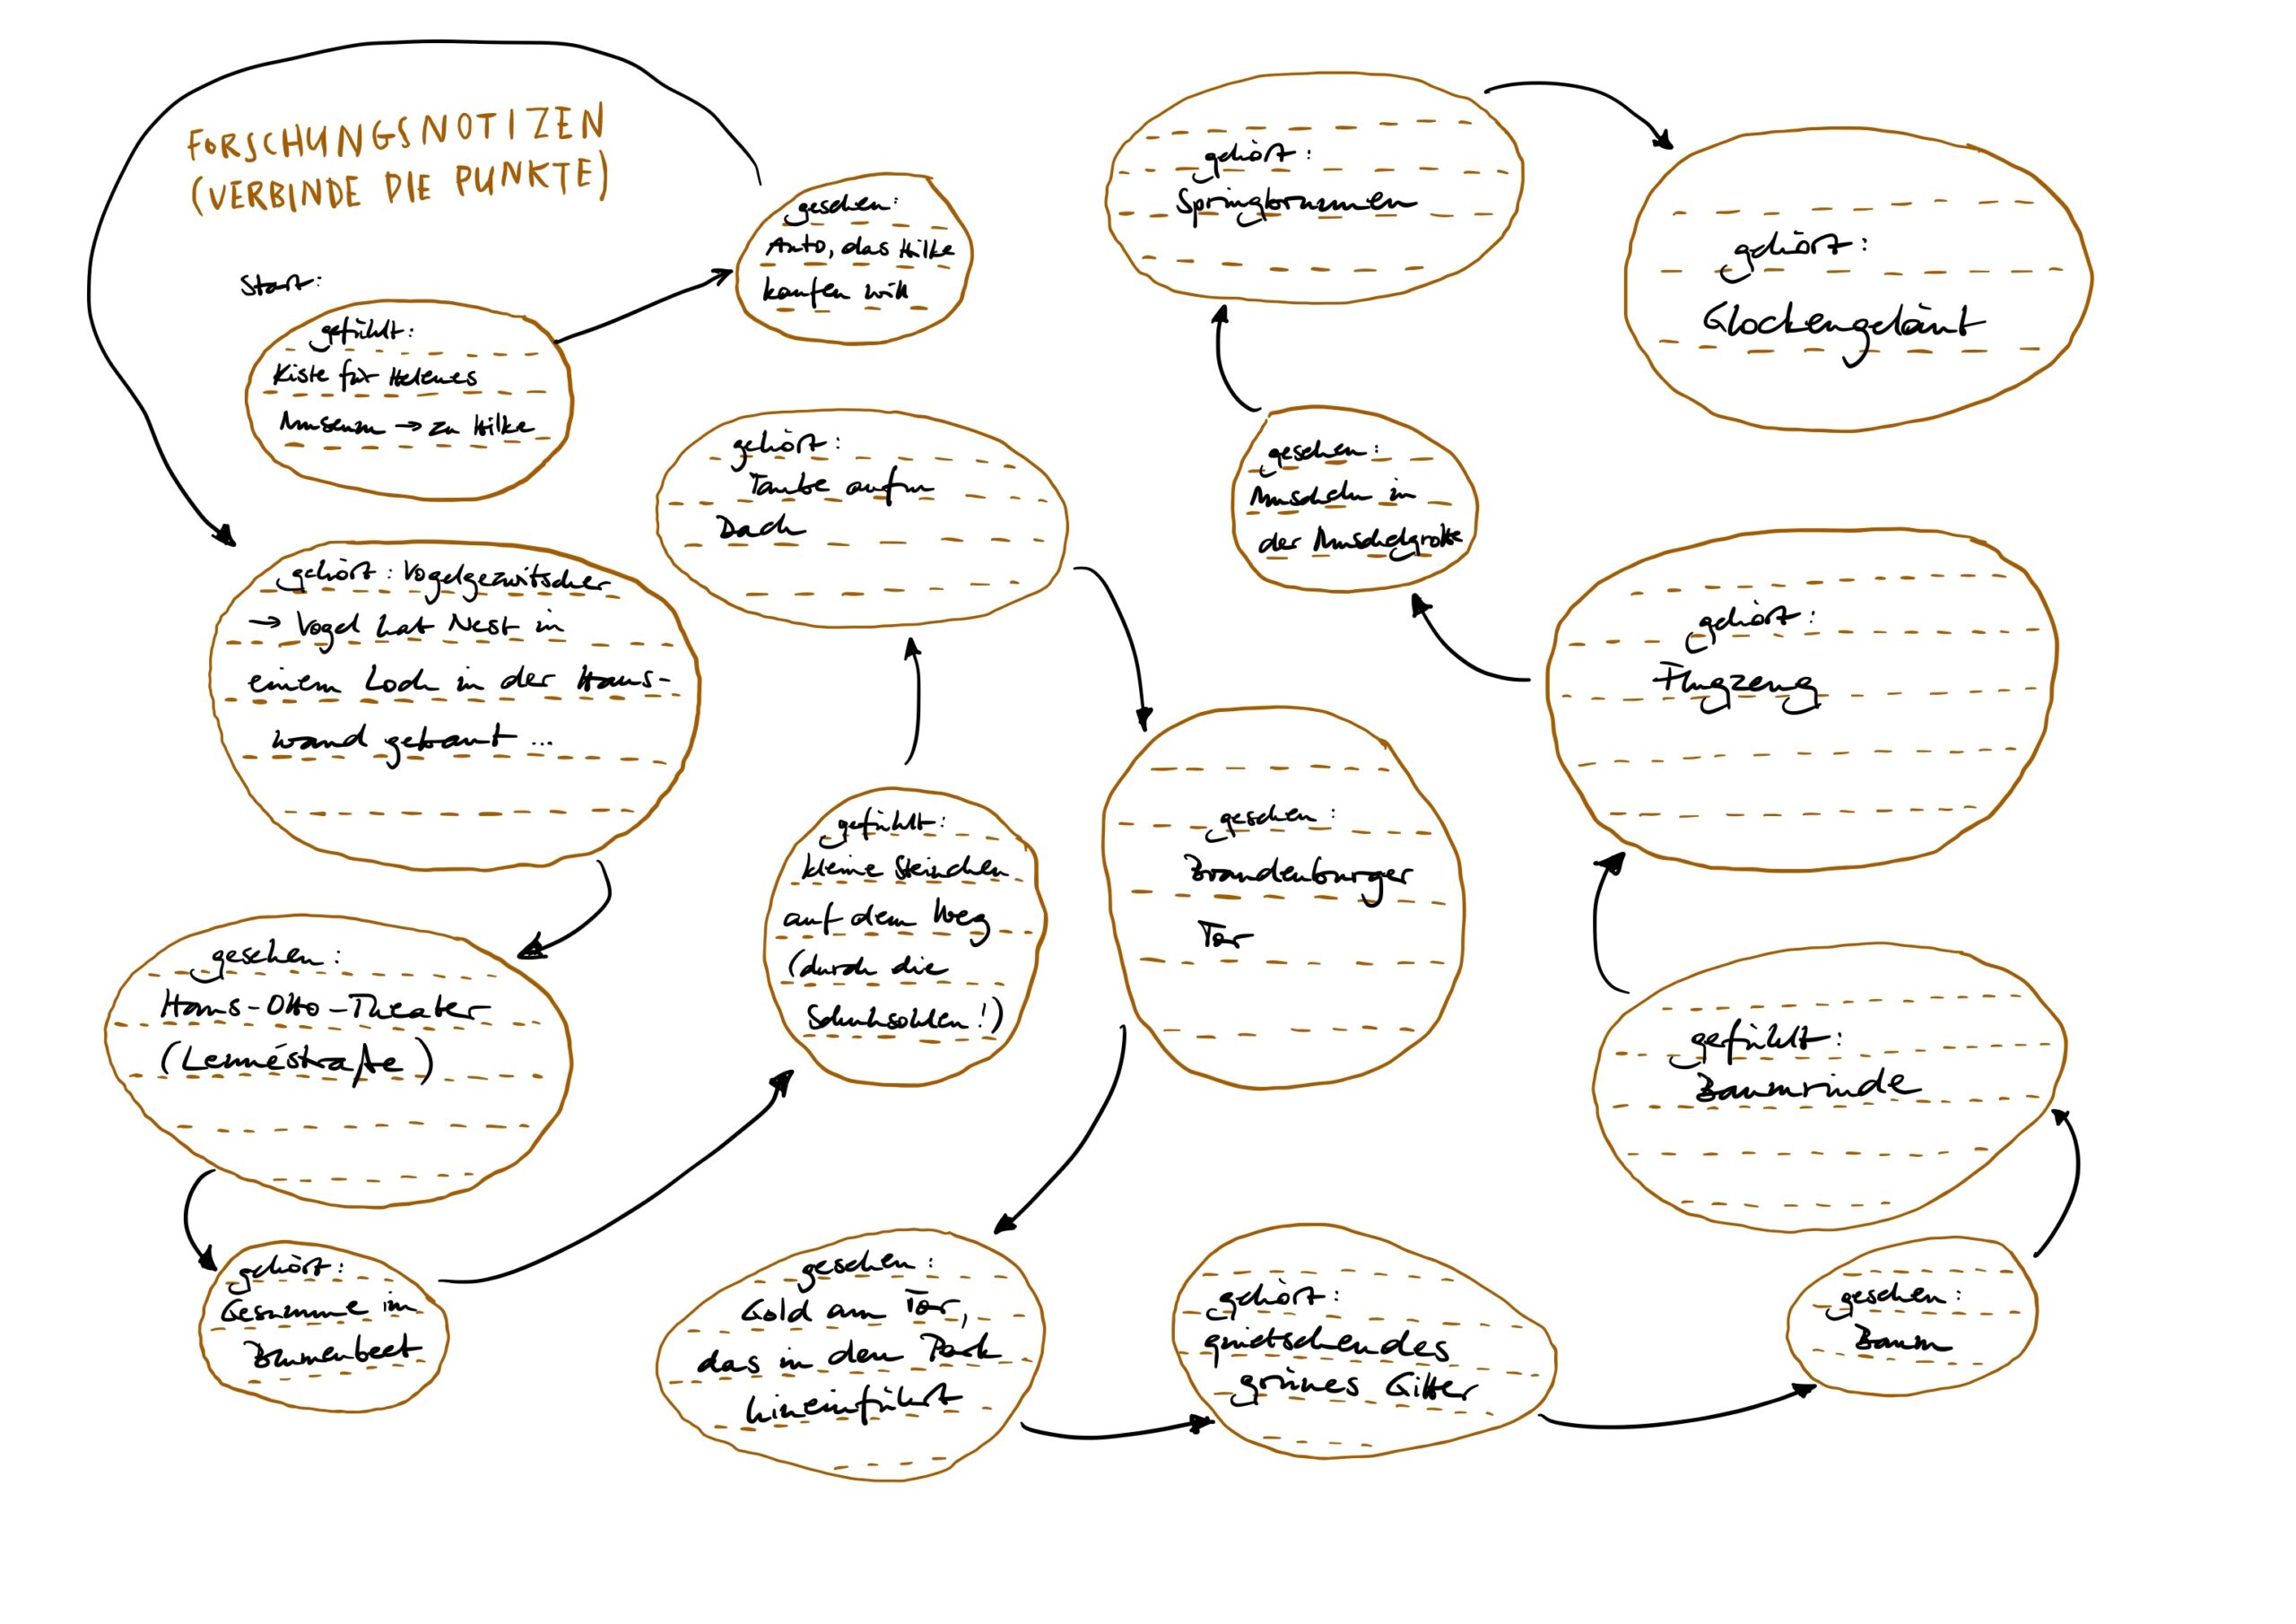 FORSCHUNGSNOTIZEN
(VERBINDE DIE PUNKTE)
Start:
gefühlt:
Kiste für Helenes
Museum → zu Hilke
gesehen:
Auto, das Hilke
kaufen will
gehört: Vogelgezwitscher
→ Vogel hat Nest in
einem Loch in der Haus-
wand gebaut ...
gesehen:
Hans-Otto-Theater
(Lennéstraße)
gehört:
Gesumme im
Blumenbeet
gefühlt:
kleine Steinchen
auf dem Weg
(durch die
Schuhsohlen!)
gehört:
Taube aufm
Dach
gesehen:
Brandenburger
Tor
gesehen:
Gold am Tor,
das in den Park
hineinführt
gehört:
quietschendes
grünes Gitter
gesehen:
Baum
gefühlt:
Baumrinde
gehört:
Flugzeug
gesehen:
Muscheln in
der Muschelgrotte
gehört:
Springbrunnen
gehört:
Glockengeläut